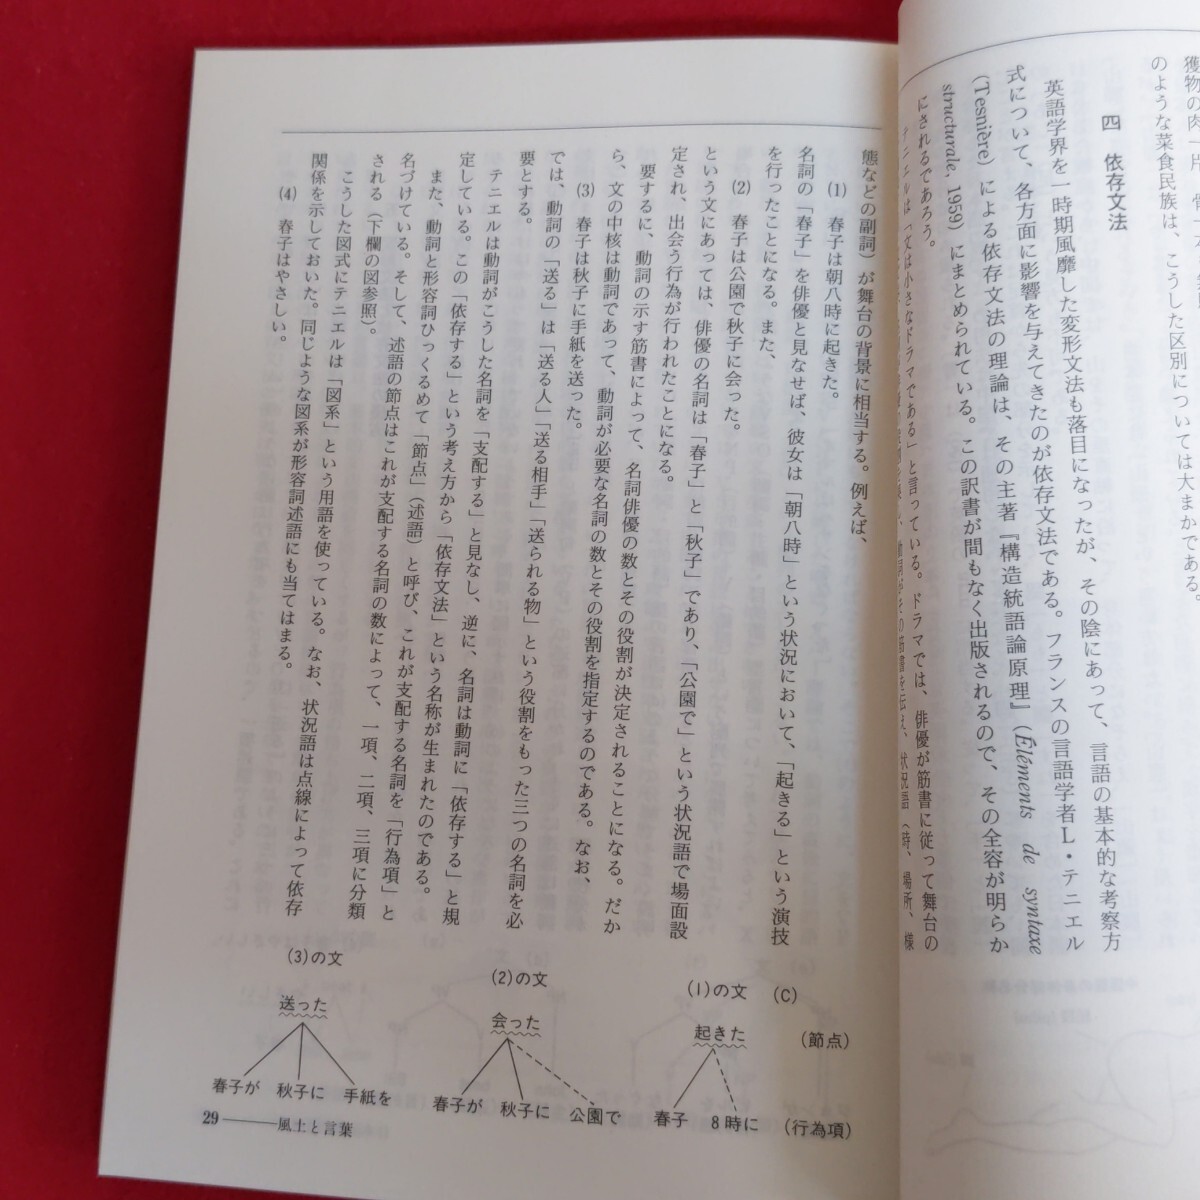 獲物の肉一片、骨
のような菜食民族は、こうした区別については大まかである。
四　依存文法
英語学界を一時期風靡した変形文法も落目になったが、その陰にあって、言語の基本的な考察方
式について、各方面に影響を与えてきたのが依存文法である。フランスの言語学者L・テニエル
(Tesnière) による依存文法の理論は、その主著『構造統語論原理』(Éléments de syntaxe
structurale, 1959) にまとめられている。この訳書が間もなく出版されるので、その全容が明らか
にされるであろう。
テニエルは「文は小さなドラマである」と言っている。ドラマでは、俳優が筋書に従って舞台の
動詞がその筋書を伝え、状況語（時、場所、様
態などの副詞）が舞台の背景に相当する。例えば、
(1)　春子は朝八時に起きた。
名詞の「春子」を俳優と見なせば、彼女は「朝八時」という状況において、「起きる」という演技
を行ったことになる。また、
(2)　春子は公園で秋子に会った。
という文にあっては、俳優の名詞は「春子」と「秋子」であり、「公園で」という状況語で場面設
定され、出会う行為が行われたことになる。
要するに、動詞の示す筋書によって、名詞俳優の数とその役割が決定されることになる。だか
ら、文の中核は動詞であって、動詞が必要な名詞の数とその役割を指定するのである。なお、
(3)　春子は秋子に手紙を送った。
では、動詞の「送る」は「送る人」「送る相手」「送られる物」という役割をもった三つの名詞を必
要とする。
テニエルは動詞がこうした名詞を「支配する」と見なし、逆に、名詞は動詞に「依存する」と規
定している。この「依存する」という考え方から「依存文法」という名称が生まれたのである。
また、動詞と形容詞ひっくるめて「節点」（述語）と呼び、これが支配する名詞を「行為項」と
名づけている。そして、述語の節点はこれが支配する名詞の数によって、一項、二項、三項に分類
される（下欄の図参照）。
こうした図式にテニエルは「図系」という用語を使っている。なお、状況語は点線によって依存
関係を示しておいた。同じような図系が形容詞述語にも当てはまる。
(4)　春子はやさしい。
(C)
(1)の文
起きた
(節点)
春子　8時に
(行為項)
(2)の文
会った
春子が　秋子に　公園で
(3)の文
送った
春子が　秋子に　手紙を
29――風土と言葉